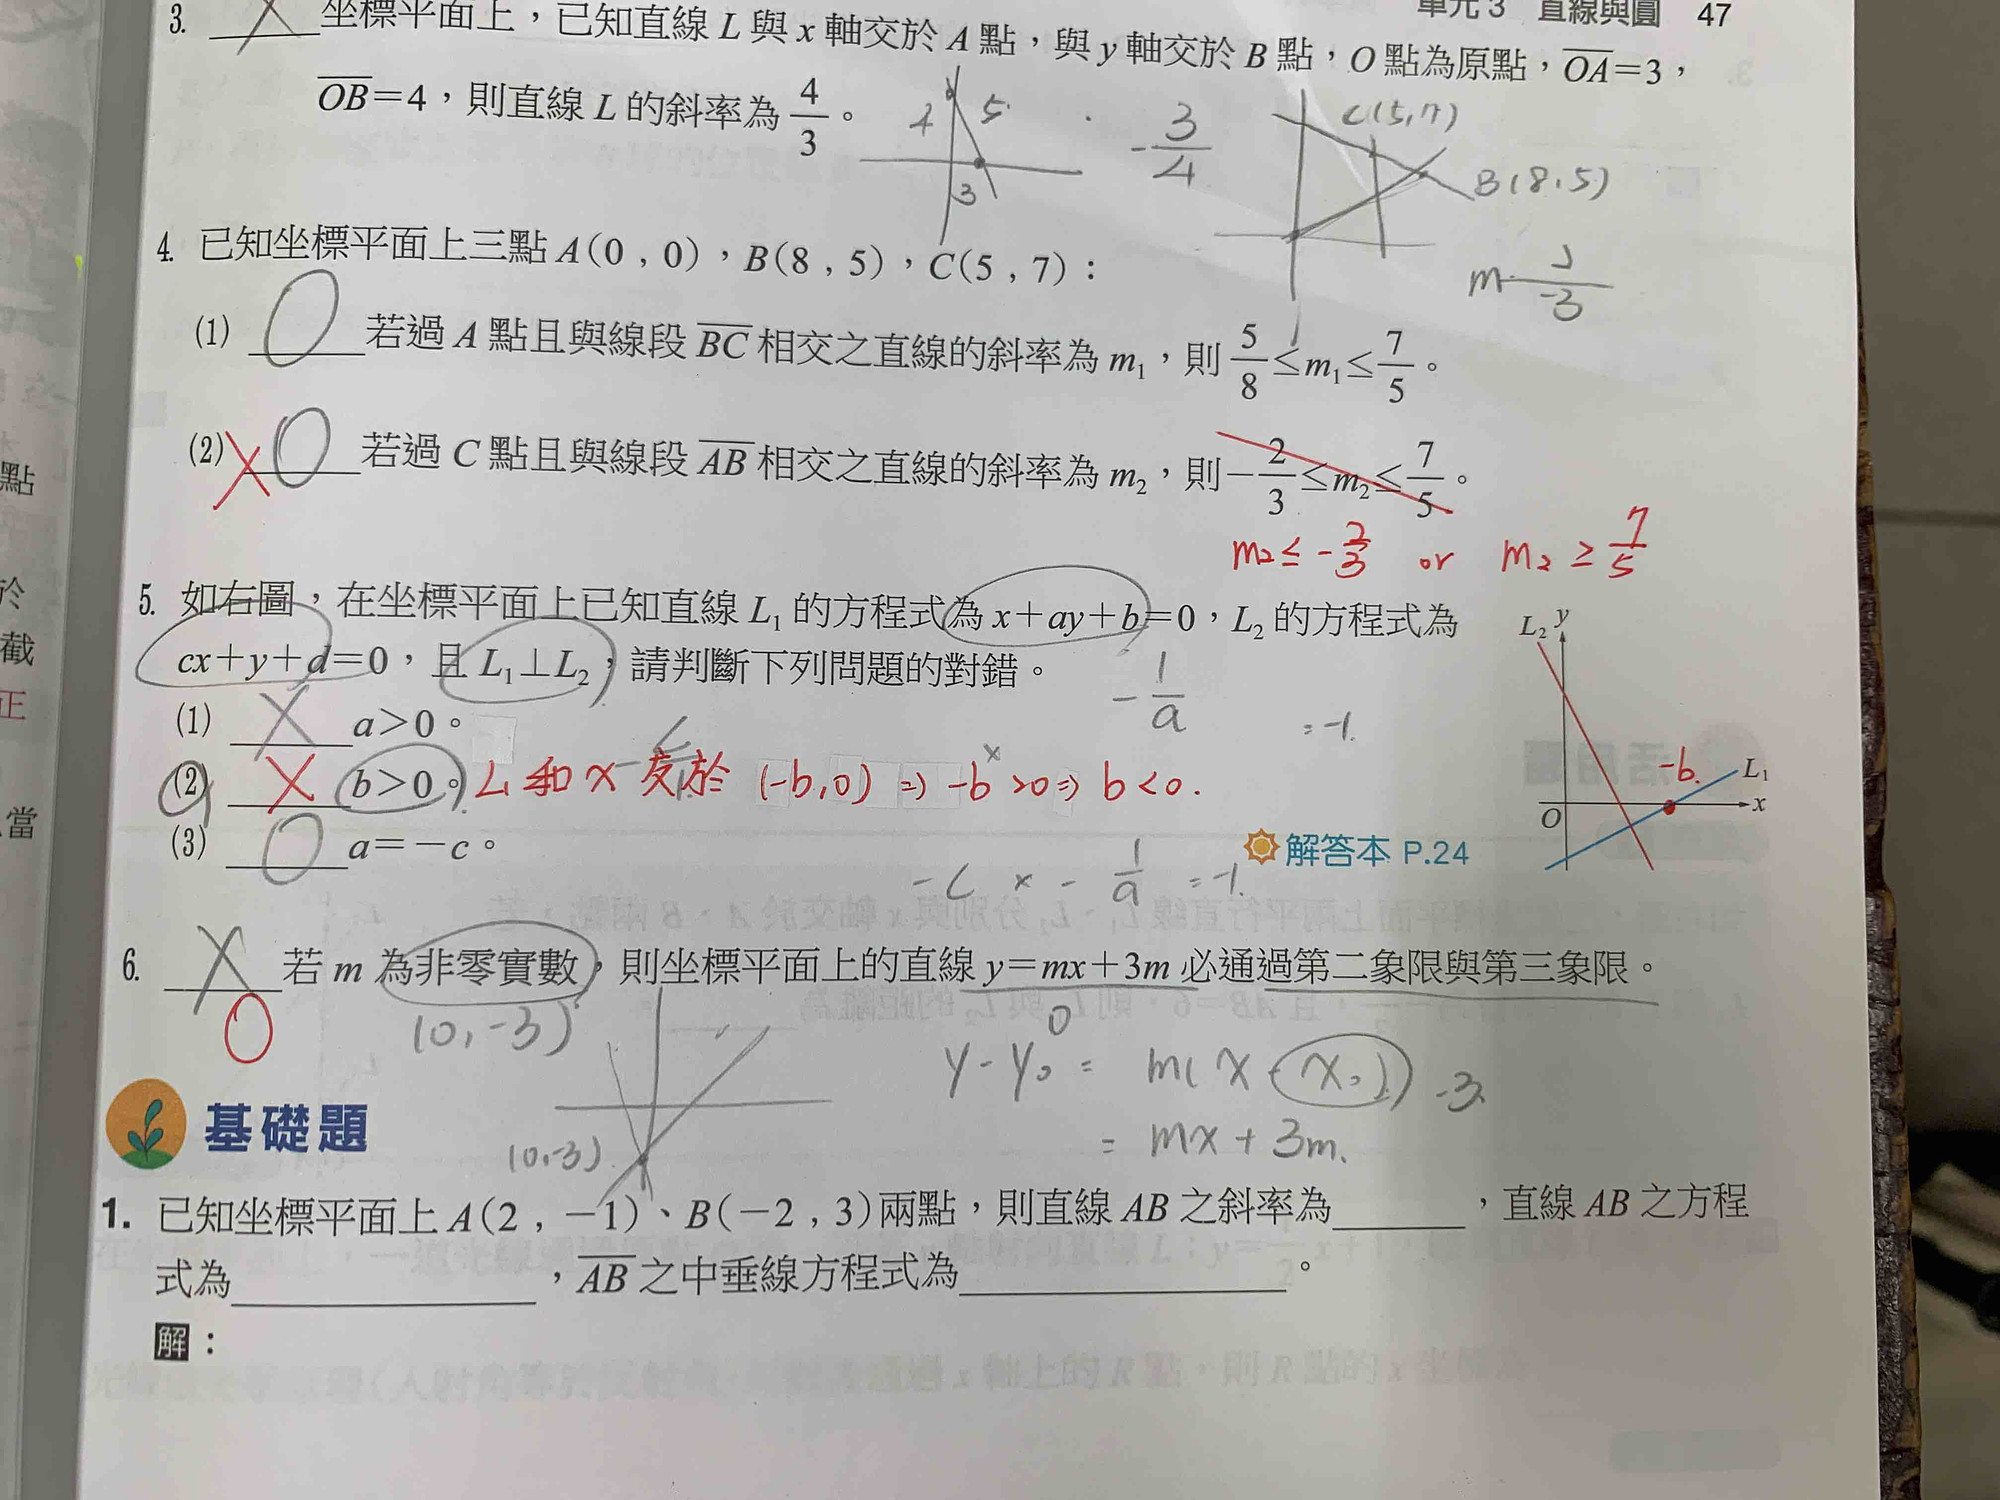 單元 3 直線與圓 47
3. X 坐標平面上，已知直線 L 與 x 軸交於 A 點，與 y 軸交於 B 點，O 點為原點，OA=3，
OB=4，則直線 L 的斜率為 4/3。
4 5
3
-3/4
C(5,7)
B(8,5)
m 2/-3
4. 已知坐標平面上三點 A(0，0)，B(8，5)，C(5，7)：
(1) O 若過 A 點且與線段 BC 相交之直線的斜率為 m₁，則 5/8≤m₁≤7/5。
(2) X O 若過 C 點且與線段 AB 相交之直線的斜率為 m₂，則 -2/3≤m₂≤7/5。
m₂≤-2/3 or m₂≥7/5
5. 如右圖，在坐標平面上已知直線 L₁ 的方程式為 x+ay+b=0，L₂ 的方程式為
cx+y+d=0，且 L₁⊥L₂，請判斷下列問題的對錯。
-1/a
=-1.
(1) X a>0。
(2) X b>0。 L 和 x 交於 (-b,0) => -b>0 => b<0.
(3) O a=-c。
-c x -1/a =-1.
L₂ y
-b. L₁
O x
解答本 P.24
6. X O 若 m 為非零實數，則坐標平面上的直線 y=mx+3m 必通過第二象限與第三象限。
(0,-3)
(0,-3)
0
y-y₀ = m(x-x₀) -3
= mx+3m.
基礎題
1. 已知坐標平面上 A(2，-1)、B(-2，3)兩點，則直線 AB 之斜率為，直線 AB 之方程
式為，AB 之中垂線方程式為。
解：
點
於
截
正
當